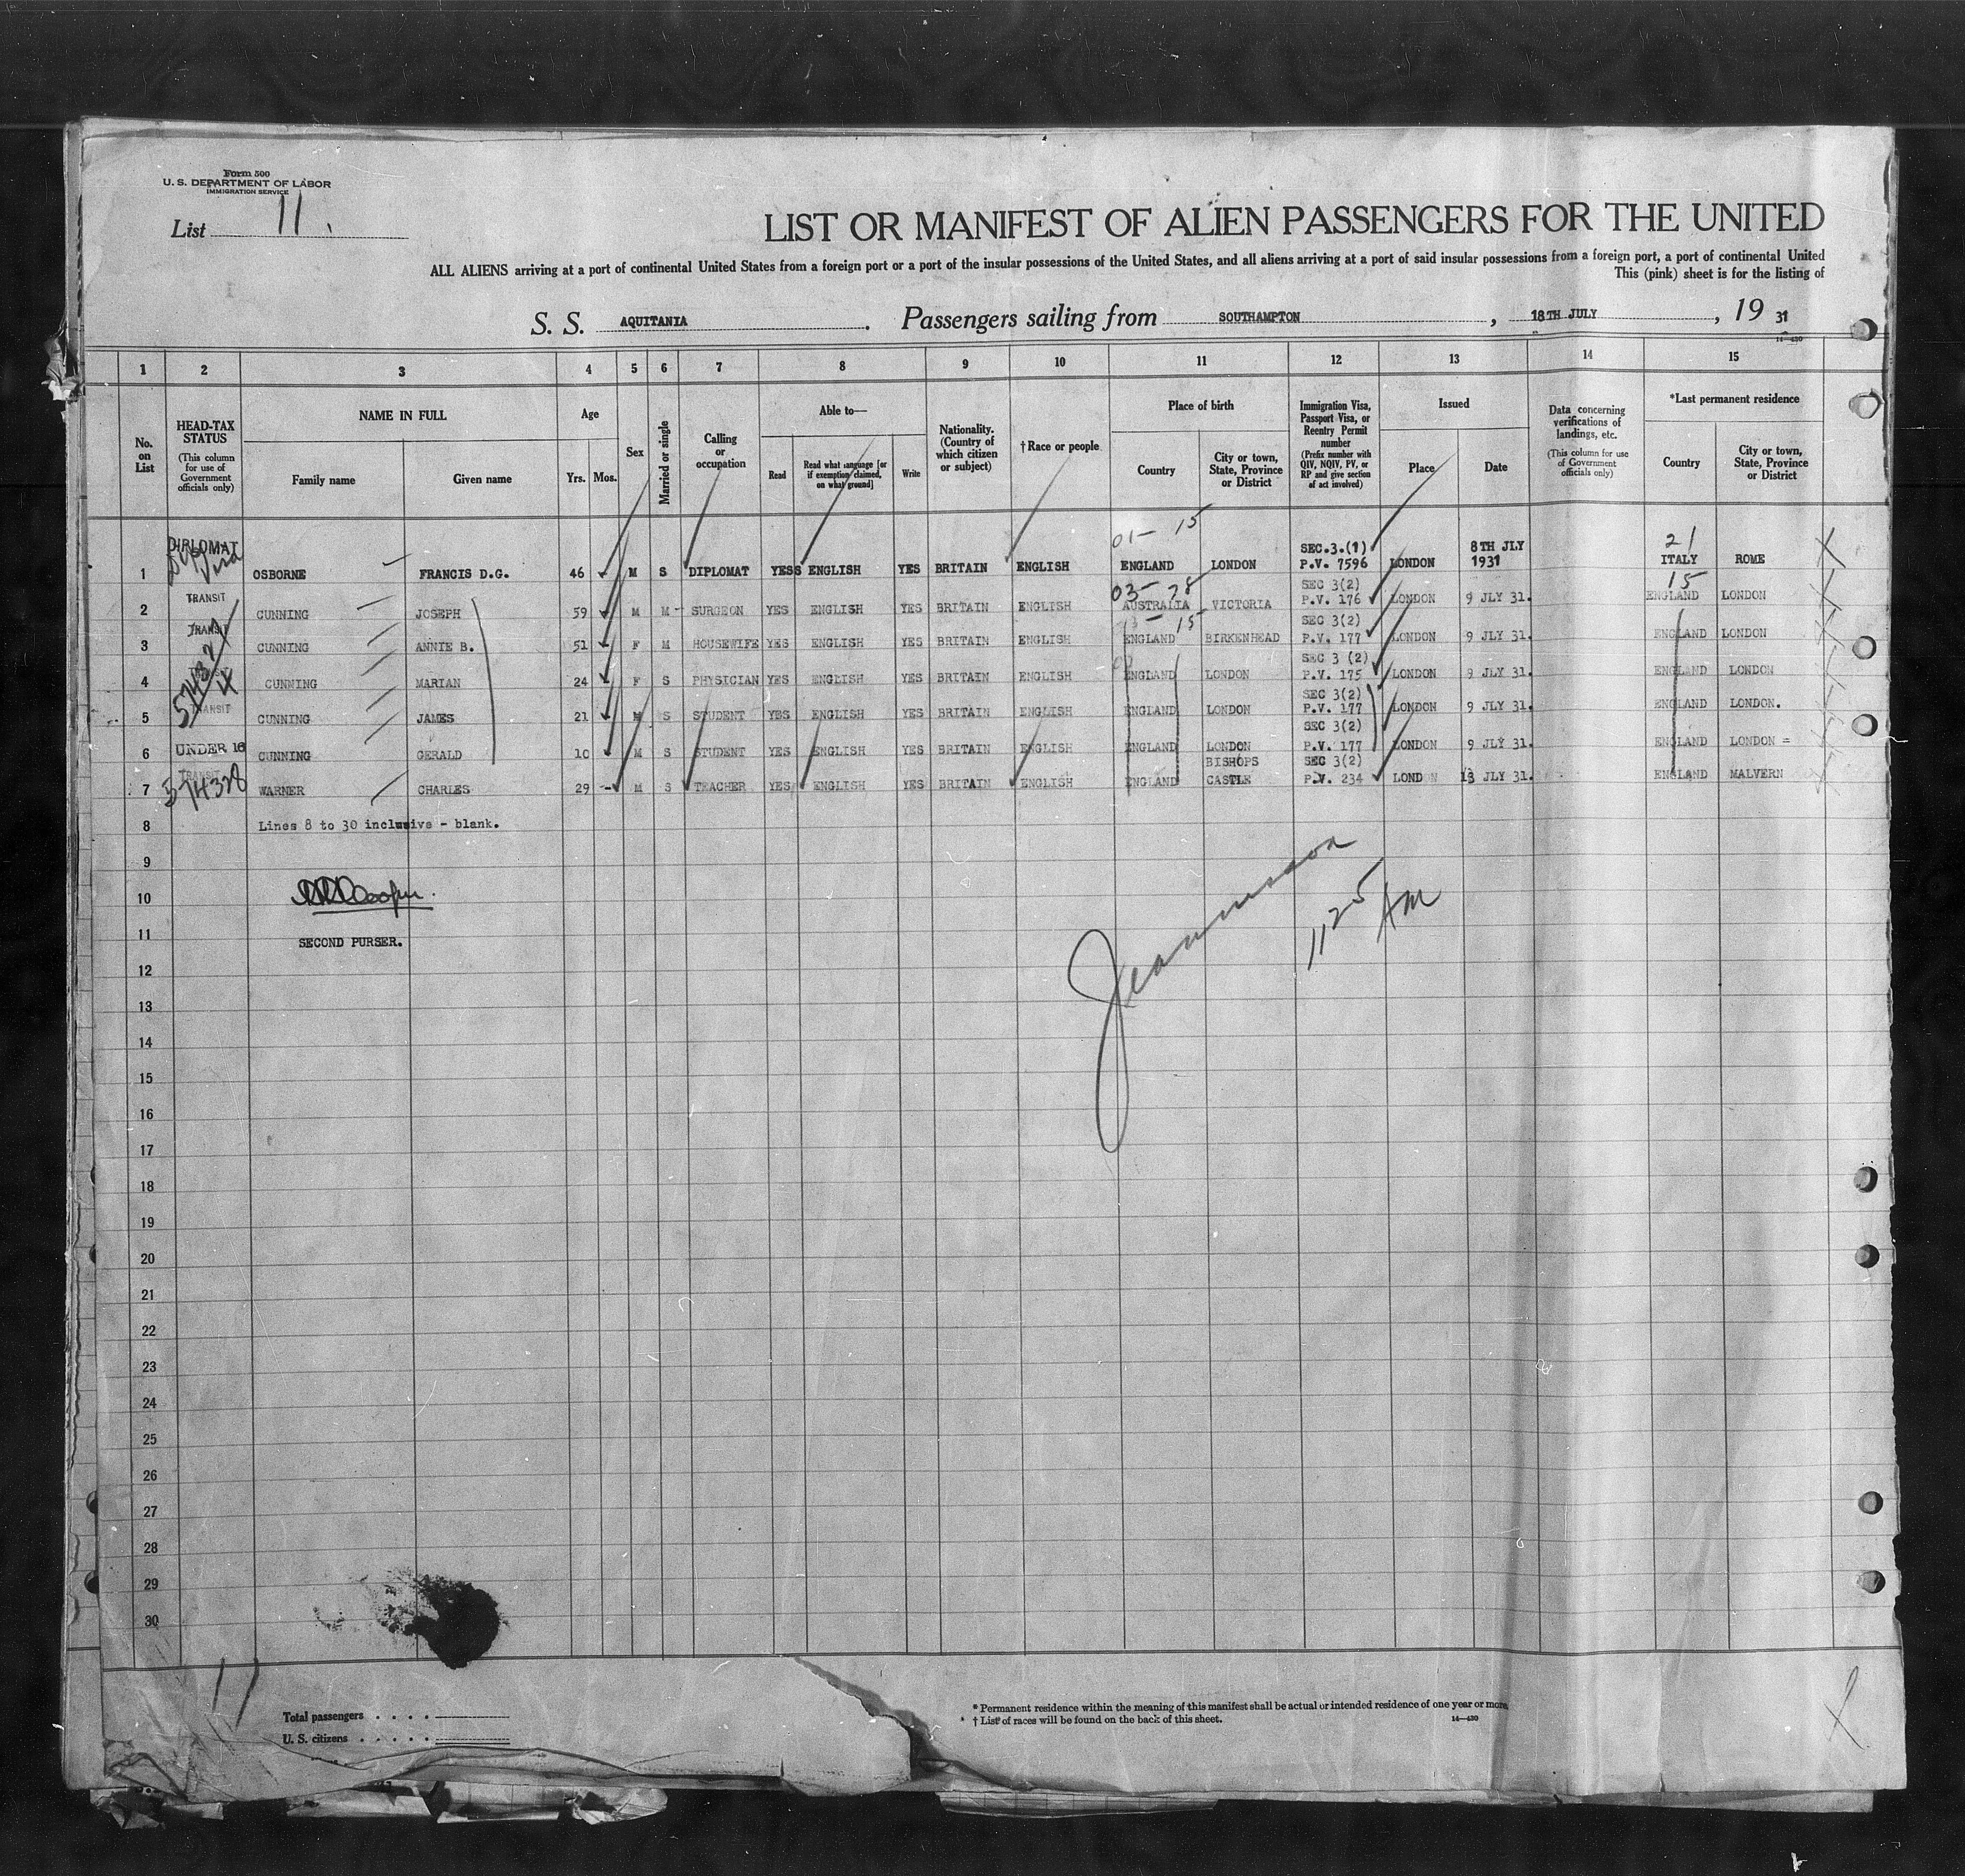 Form 500
U. S. DEPARTMENT OF LABOR
IMMIGRATION SERVICE
List 11.
LIST OR MANIFEST OF ALIEN PASSENGERS FOR THE UNITED
ALL ALIENS arriving at a port of continental United States from a foreign port or a port of the insular possessions of the United States, and all aliens arriving at a port of said insular possessions from a foreign port, a port of continental United
This (pink) sheet is for the listing of
S. S. AQUITANIA. Passengers sailing from SOUTHAMPTON, 18TH JULY, 19 31
14—430
1 2 3 4 5 6 7 8 9 10 11 12 13 14 15
No. on List
HEAD-TAX STATUS (This column for use of Government officials only)
NAME IN FULL
Family name Given name
Age
Yrs. Mos.
Sex
Married or single
Calling or occupation
Able to—
Read Read what language [or if exemption claimed, on what ground] Write
Nationality. (Country of which citizen or subject)
† Race or people
Place of birth
Country City or town, State, Province or District
Immigration Visa, Passport Visa, or Reentry Permit number (Prefix number with QIV, NQIV, PV, or RP and give section of act involved)
Issued
Place Date
Data concerning verifications of landings, etc. (This column for use of Government officials only)
*Last permanent residence
Country City or town, State, Province or District
01- 15
21
DIPLOMAT Visa SEC.3.(1) 8TH JLY
1 OSBORNE FRANCIS D.G. 46 M S DIPLOMAT YESS ENGLISH YES BRITAIN ENGLISH ENGLAND LONDON P.V. 7596 LONDON 1931 ITALY ROME X
TRANSIT 03- 28 SEC 3(2) 15
2 CUNNING JOSEPH 59 M M - SURGEON YES ENGLISH YES BRITAIN ENGLISH AUSTRALIA VICTORIA P.V. 176 LONDON 9 JLY 31. ENGLAND LONDON X
TRANSIT 15 SEC 3(2)
3 CUNNING ANNIE B. 51 F M HOUSEWIFE YES ENGLISH YES BRITAIN ENGLISH ENGLAND BIRKENHEAD P.V. 177 LONDON 9 JLY 31. ENGLAND LONDON
SEC 3 (2)
4 CUNNING MARIAN 24 F S PHYSICIAN YES ENGLISH YES BRITAIN ENGLISH ENGLAND LONDON P.V. 175 LONDON 9 JLY 31. ENGLAND LONDON
TRANSIT SEC 3(2)
5 CUNNING JAMES 21 M S STUDENT YES ENGLISH YES BRITAIN ENGLISH ENGLAND LONDON P.V. 177 LONDON 9 JLY 31. ENGLAND LONDON.
UNDER 16 SEC 3(2)
6 CUNNING GERALD 10 M S STUDENT YES ENGLISH YES BRITAIN ENGLISH ENGLAND LONDON P.V. 177 LONDON 9 JLY 31. ENGLAND LONDON =
TRANSIT 574328 BISHOPS SEC 3(2)
7 WARNER CHARLES 29 - M S TEACHER YES ENGLISH YES BRITAIN ENGLISH ENGLAND CASTLE P.V. 234 LONDON 13 JLY 31. ENGLAND MALVERN
8 Lines 8 to 30 inclusive - blank.
9
10
11 SECOND PURSER.
1125 AM
12
13
14
15
16
17
18
19
20
21
22
23
24
25
26
27
28
29
30
11
Total passengers . . . .
U. S. citizens . . . . .
* Permanent residence within the meaning of this manifest shall be actual or intended residence of one year or more.
† List of races will be found on the back of this sheet.
14—430
X